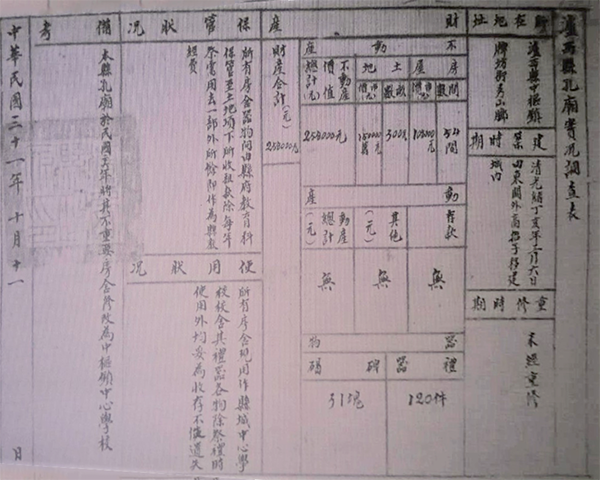 瀘西縣孔廟實況調查表
所在地址
瀘西縣中樞鎮
牌坊街秀山鄉
建築時期
清光緒丁亥年二月六日
由東關外高招子移建
城內
重修時期
未經重修
財產
不動產
房屋
間數
54間
價值(元)
108000元
土地
畝數
300畝
價值(元)
150000元
不動產價值總計(元)
258000元
動產
存款
無
其他(元)
無
動產總計(元)
無
器物
禮器
120件
碑碣
31塊
財產合計(元)
258000元
保管狀況
所有房舍器物向由縣府教育科
保管至土地項下所收租息除每年
祭需用去一部外所餘即作為縣教
經費
使用狀況
所有房舍現用作縣城中心學
校校舍其禮器各物除祭禮時
使用外均妥為收存不懼遺失
備考
本縣孔廟於民國 年將其不重要房舍修改為中樞鎮中心學校
中華民國三十一年十月十一日